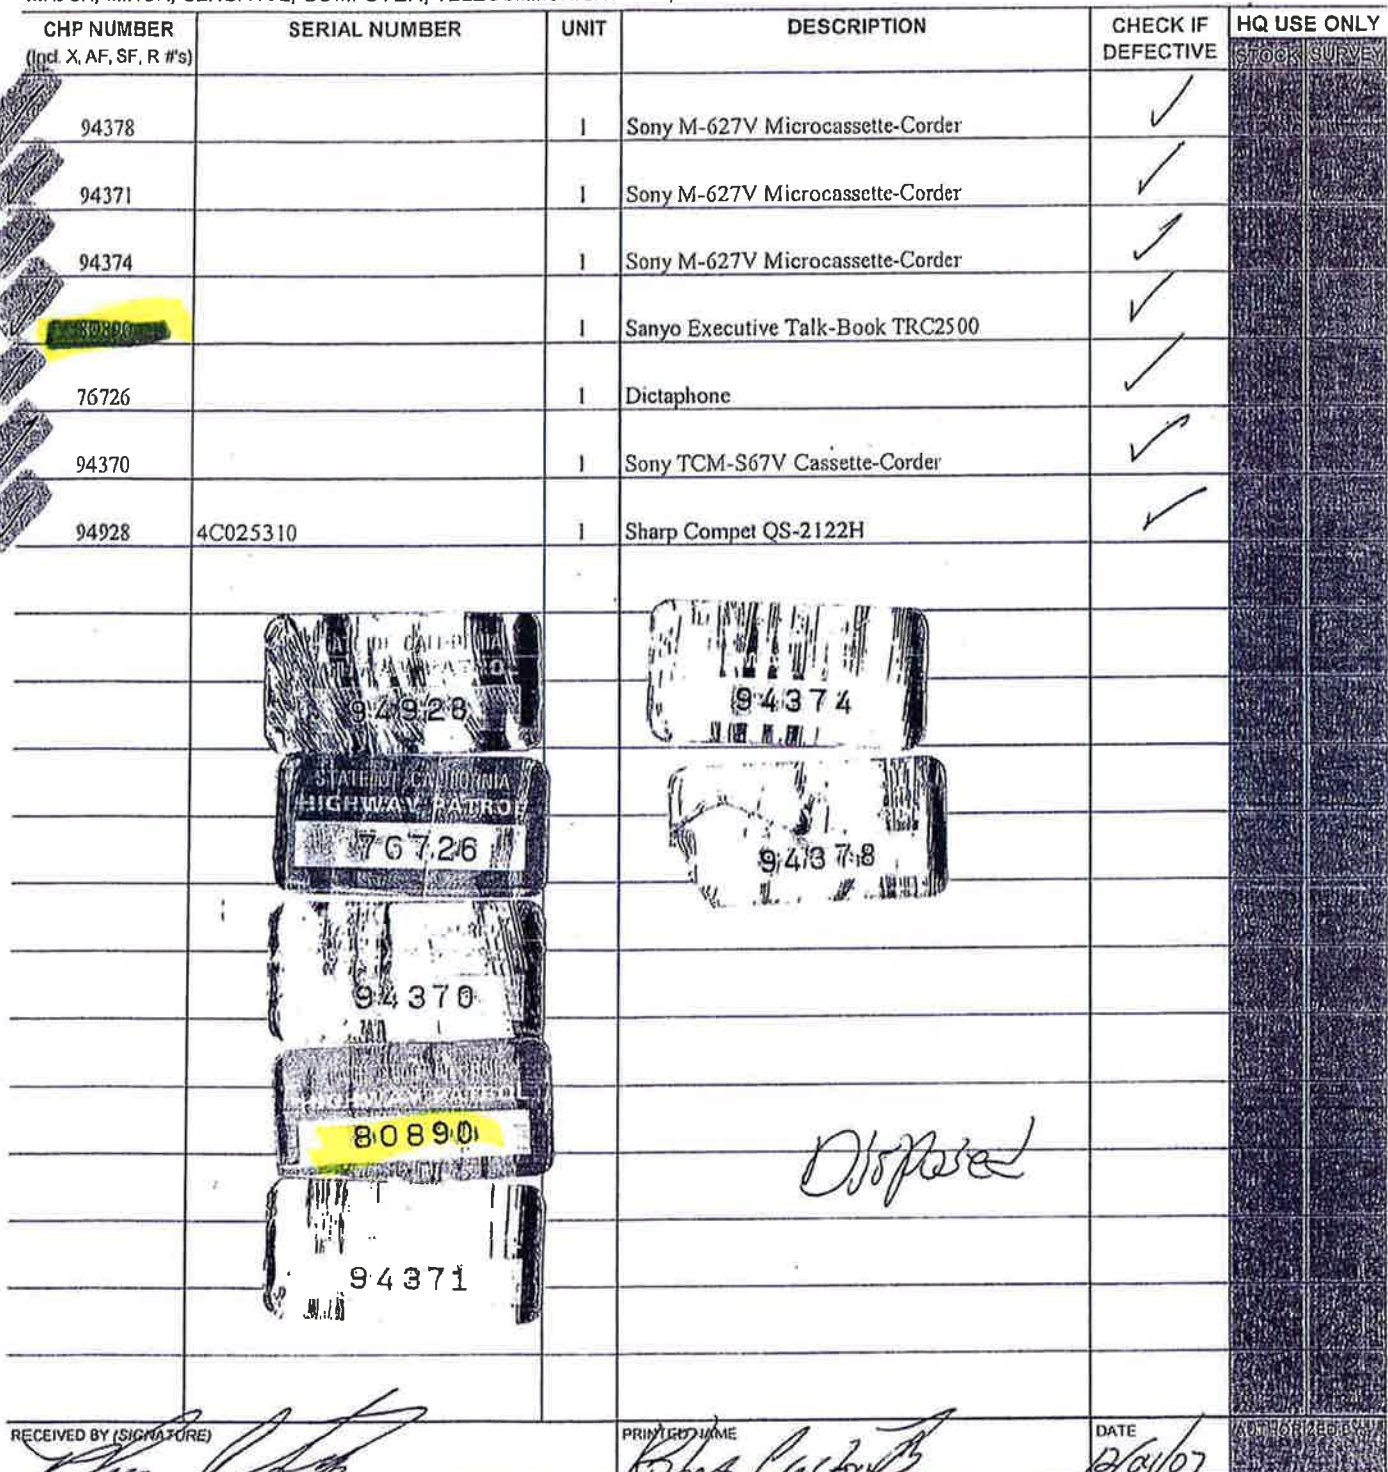 CHP NUMBER SERIAL NUMBER UNIT DESCRIPTION CHECK IF HQ USE ONLY
(Incl. X, AF, SF, R #'s) DEFECTIVE STOCK SURVEY
94378 1 Sony M-627V Microcassette-Corder ✓
94371 1 Sony M-627V Microcassette-Corder ✓
94374 1 Sony M-627V Microcassette-Corder ✓
80890 1 Sanyo Executive Talk-Book TRC2500 ✓
76726 1 Dictaphone ✓
94370 1 Sony TCM-S67V Cassette-Corder ✓
94928 4C025310 1 Sharp Compet QS-2122H ✓
94928
94374
STATE OF CALIFORNIA
HIGHWAY PATROL
76726
94378
94370
HIGHWAY PATROL
80890
Disposed
94371
RECEIVED BY (SIGNATURE) PRINTED NAME DATE AUTHORIZED BY